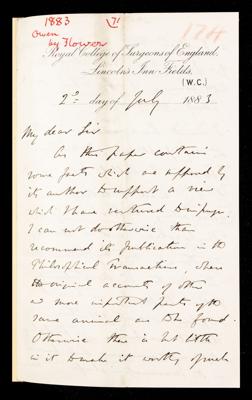 1883
Owen
by Flower
174
Royal College of Surgeons of England,
Lincoln's Inn Fields,
(W.C.)
2d day of July 1883
My dear Sir
As this paper contains
some facts which are supposed by
its author to support a view
which I have ventured to impugn,
I can not do otherwise than
recommend its publication in the
Philosophical Transactions, where
the original accounts of other
and more important parts of the
same animal are to be found.
Otherwise there is but little
in it to make it worthy of such